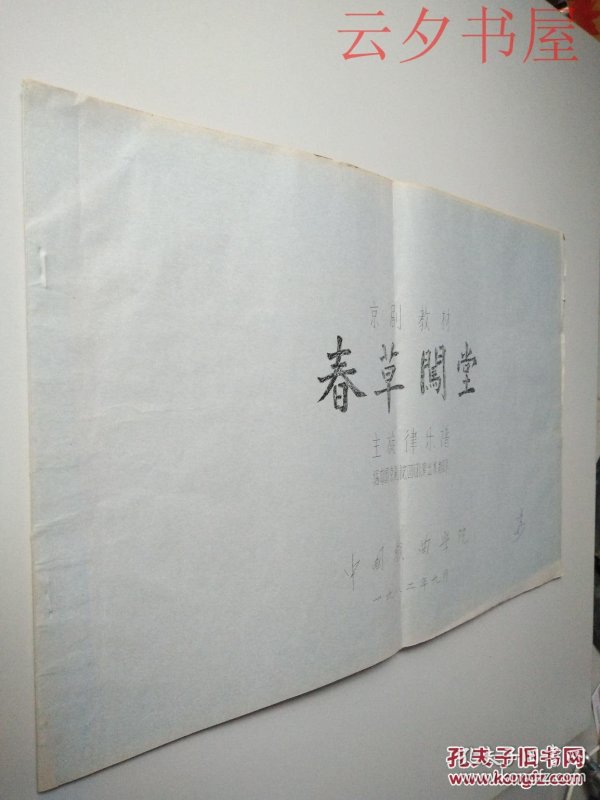 云夕书屋
京剧教材
春草闯堂
主旋律乐谱
中国戏曲学院
一九八二年九月
孔夫子旧书网
www.kongfz.com